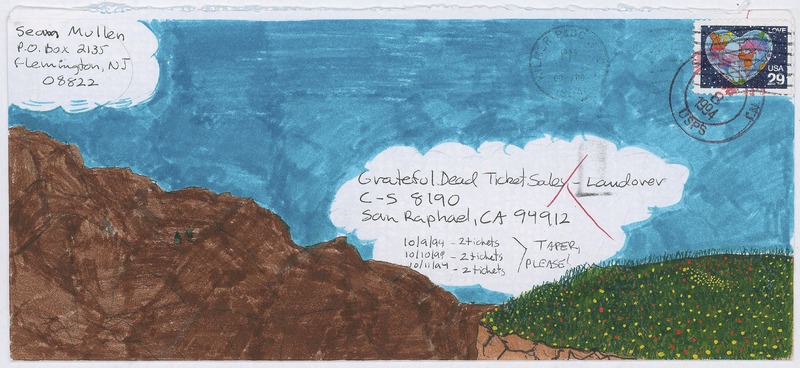 Sean Mullen
P.O. Box 2135
Flemington, NJ
08822
LOVE
USA
29
1994
USPS
Grateful Dead Ticket Sales - Landover
C-S 8190
San Raphael, CA 94912
10/9/94 - 2 tickets
10/10/94 - 2 tickets
10/11/94 - 2 tickets
TAPER,
PLEASE!